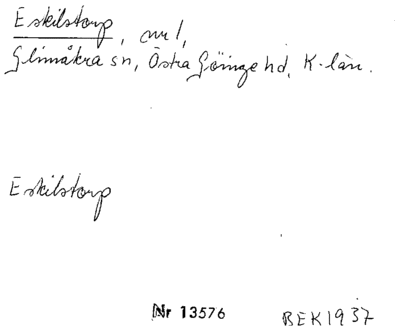 Eskilstorp, nr 1,
Glimåkra sn, Östra Göinge hd, K-län.
Eskilstorp
Nr 13576 BEK 1937